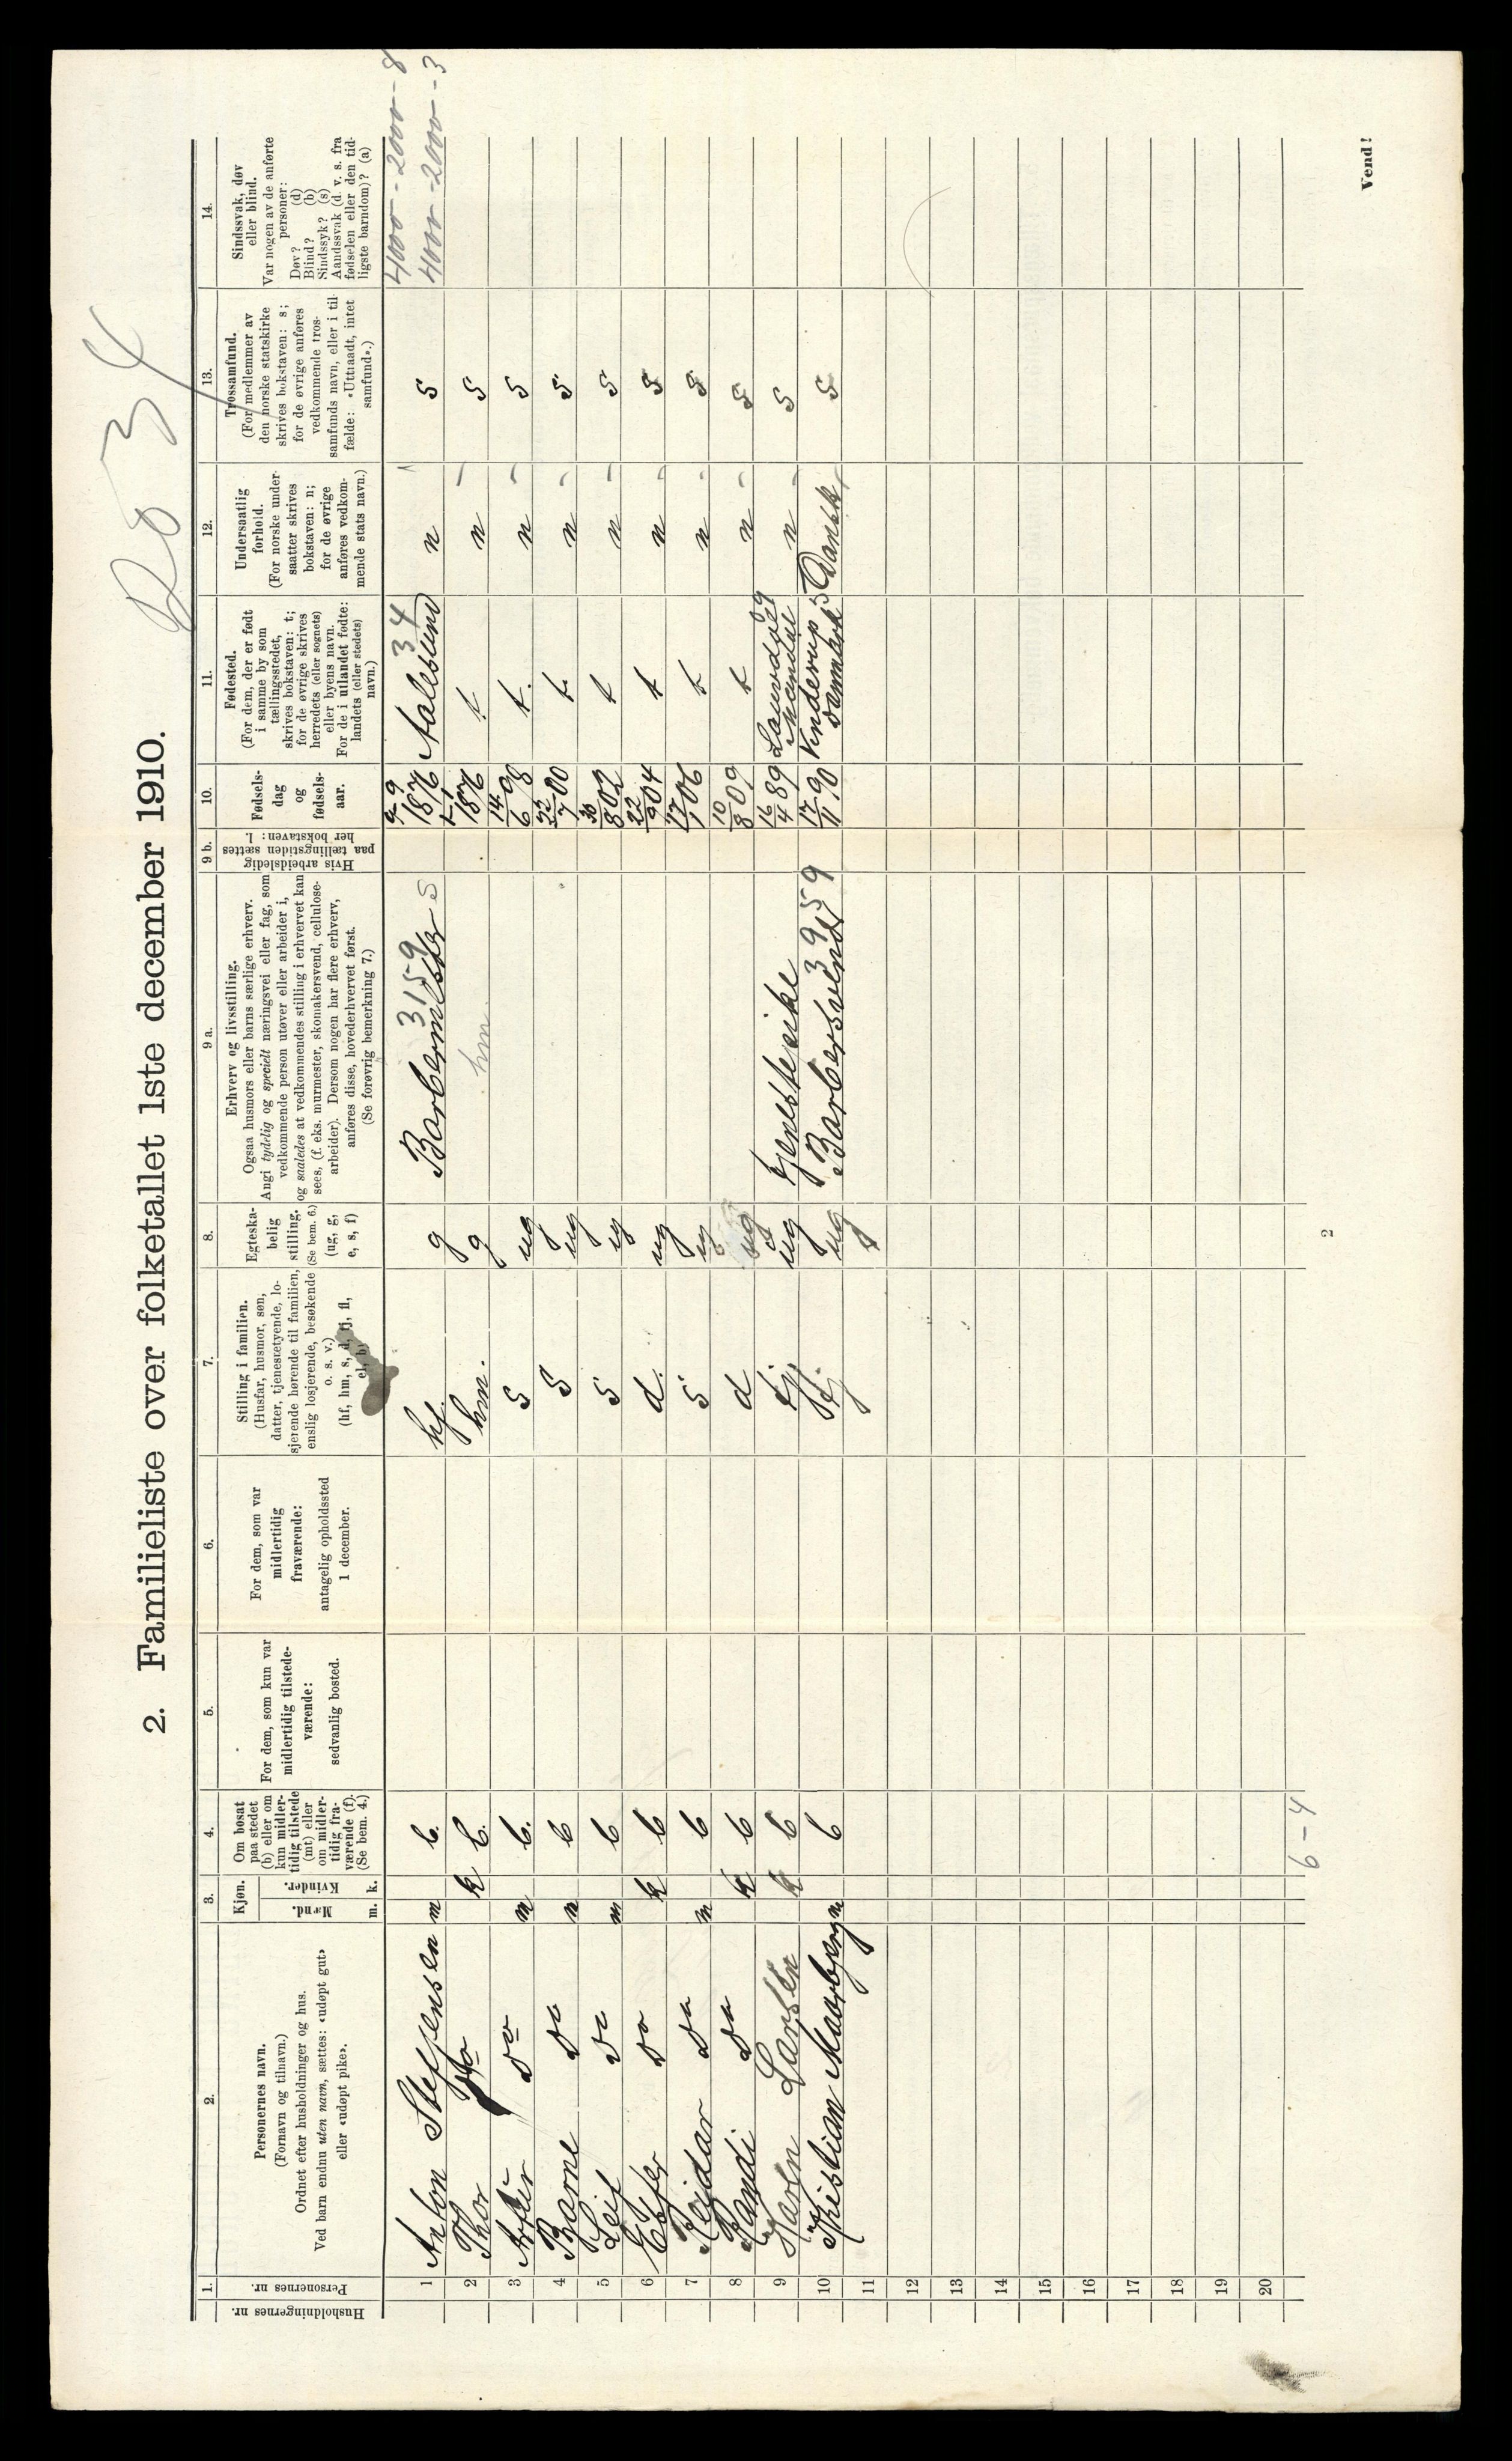 2. Familieliste over folketallet 1ste december 1910.
1.
Husholdningernes nr.
Personernes nr.
2.
Personernes navn.
(Fornavn og tilnavn.)
Ordnet efter husholdninger og hus.
Ved barn endnu uten navn, sættes: «udøpt gut»
eller «udøpt pike».
3.
Kjøn.
Mænd.
Kvinder.
m. k.
4.
Om bosat
paa stedet
(b) eller om
kun midler-
tidig tilstede
(mt) eller
om midler-
tidig fra-
værende (f).
(Se bem. 4.)
5.
For dem, som kun var
midlertidig tilstede-
værende:
sedvanlig bosted.
6.
For dem, som var
midlertidig
fraværende:
antagelig opholdssted
1 december.
7.
Stilling i familien.
(Husfar, husmor, søn,
datter, tjenestetyende, lo-
sjerende hørende til familien,
enslig losjerende, besøkende
o. s. v.)
(hf, hm, s, d, tj, fl,
el, b)
8.
Egteska-
belig
stilling.
(Se bem. 6.)
(ug, g,
e, s, f)
9 a.
Erhverv og livsstilling.
Ogsaa husmors eller barns særlige erhverv.
Angi tydelig og specielt næringsvei eller fag, som
vedkommende person utøver eller arbeider i,
og saaledes at vedkommendes stilling i erhvervet kan
sees, (f. eks. murmester, skomakersvend, cellulose-
arbeider). Dersom nogen har flere erhverv,
anføres disse, hovederhvervet først.
(Se forøvrig bemerkning 7.)
9 b.
Hvis arbeidsledig
paa tællingstiden sættes
her bokstaven: l.
10.
Fødsels-
dag
og
fødsels-
aar.
11.
Fødested.
(For dem, der er født
i samme by som
tællingsstedet,
skrives bokstaven: t;
for de øvrige skrives
herredets (eller sognets)
eller byens navn.
For de i utlandet fødte:
landets (eller stedets)
navn.)
12.
Undersaatlig
forhold.
(For norske under-
saatter skrives
bokstaven: n;
for de øvrige
anføres vedkom-
mende stats navn.)
13.
Trossamfund.
(For medlemmer av
den norske statskirke
skrives bokstaven: s;
for de øvrige anføres
vedkommende tros-
samfunds navn, eller i til-
fælde: «Uttraadt, intet
samfund».)
14.
Sindssvak, døv
eller blind.
Var nogen av de anførte
personer:
Døv? (d)
Blind? (b)
Sindssyk? (s)
Aandssvak (d. v. s. fra
fødselen eller den tid-
ligste barndom)? (a)
4000 - 2000 - 8
4000 - 2000 - 3
1 Anton Steffensen m b. hf. g Barbermester 3159 s 9-9 1876 Aalesund 34 n s
2 Thor do k b. hm. g hm 1-1 1876 t n s
3 Artur do m b. s ug 14/6 98 t. n s
4 Barne do m b s ug 23/7 00 t. n s
5 Leif do m b s ug 30/8 02 t n s
6 Ester do k b d. ug 22/9 04 t n s
7 Reidar do m b s ug 17/1 06 t n s
8 Randi do k b d ug 10/8 09 t n s
9 Karen Larsen k b tj. ug Tjenestepike 16/4 89 Mandal n s
10 Kristian Maarbjerg m b tj ug Barbersvend 3959 17/11 90 Vinderup Danmark Dansk s
11
12
13
14
15
16
17
18
19
20
6 - 4
2
Vend!